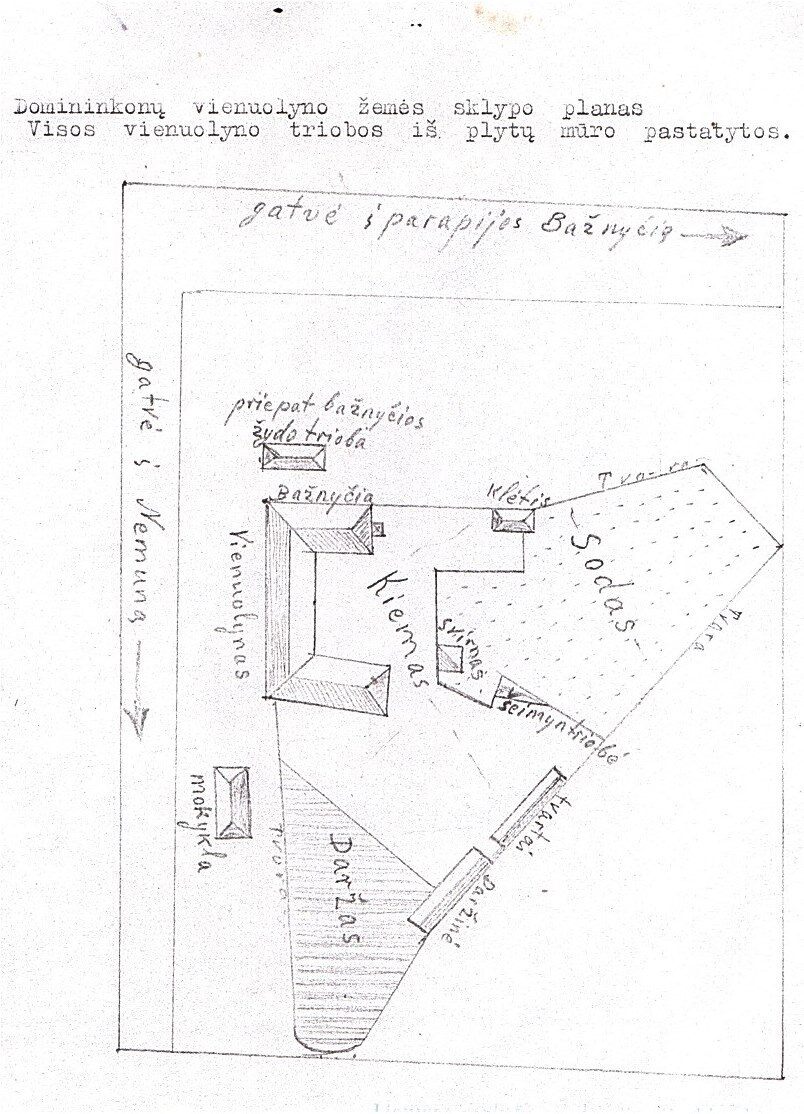 Domininkonų vienuolyno žemės sklypo planas
Visos vienuolyno triobos iš plytų mūro pastatytos.
gatvė į parapijos Bažnyčią
gatvė į Nemuną
priepat bažnyčios
žydo trioba
Bažnyčia
Klėtis
Tvora
Sodas
Vienuolynas
Kiemas
svirnas
Tvora
šeimyntriobė
mokykla
tvora
Daržas
tvartai
Daržinė